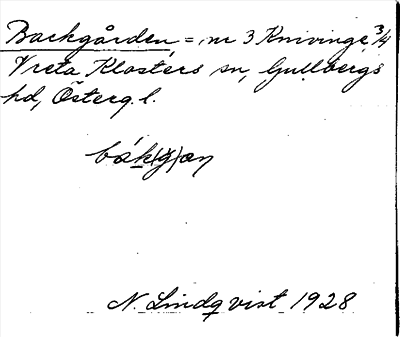 Backgården, = nr 3 Knivinge 3/4
Vreta Klosters sn, Gullbergs
hd, Österg. l.
N. Lindqvist 1928